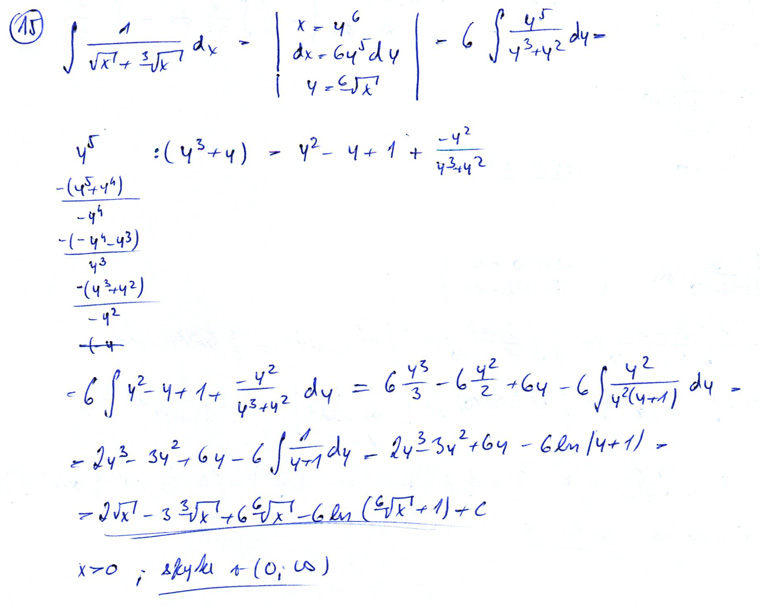 15
∫ 1/(√x + ³√x) dx = | x = y⁶ | = 6 ∫ y⁵/(y³+y²) dy =
| dx = 6y⁵dy |
| y = ⁶√x |
y⁵ : (y³+y) = y² - y + 1 + -y²/(y³+y²)
-(y⁵+y⁴)
-y⁴
-(-y⁴-y³)
y³
-(y³+y²)
-y²
= 6 ∫ y² - y + 1 + -y²/(y³+y²) dy = 6 y³/3 - 6 y²/2 + 6y - 6 ∫ y²/(y²(y+1)) dy =
= 2y³ - 3y² + 6y - 6 ∫ 1/(y+1) dy = 2y³ - 3y² + 6y - 6 ln|y+1| =
= 2√x - 3 ³√x + 6 ⁶√x - 6 ln (⁶√x + 1) + c
x>0 ; (0; ∞)